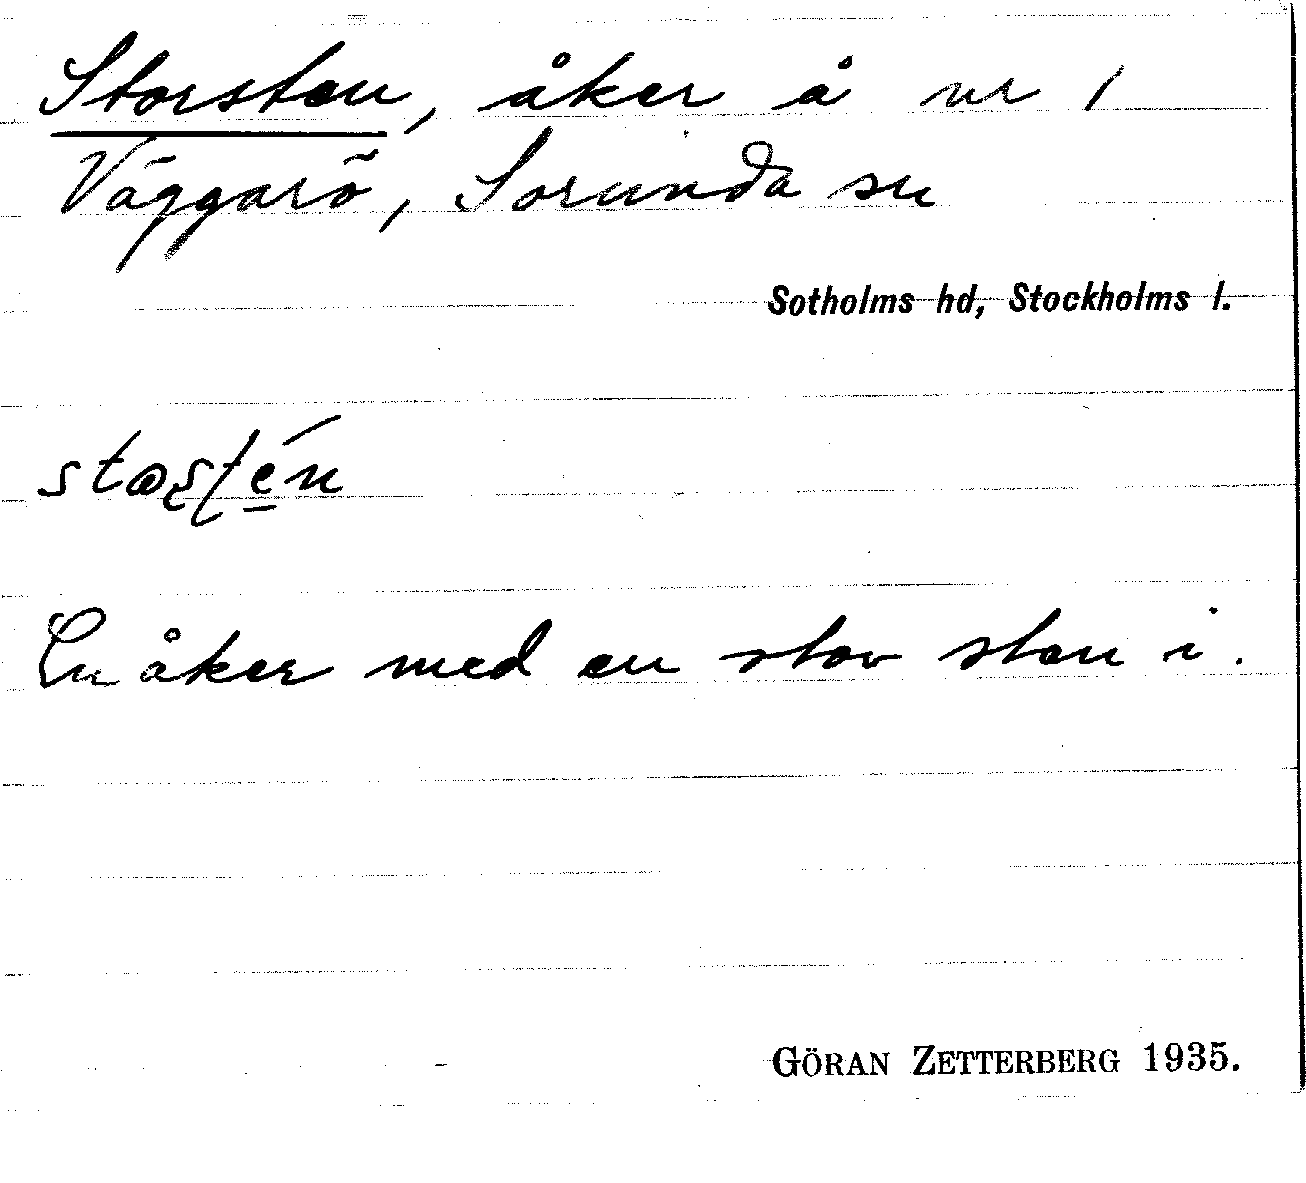 Storsten, åker å nr 1
Väggarö, Sorunda sn
Sotholms hd, Stockholms l.
En åker med en stor sten i.
GÖRAN ZETTERBERG 1935.